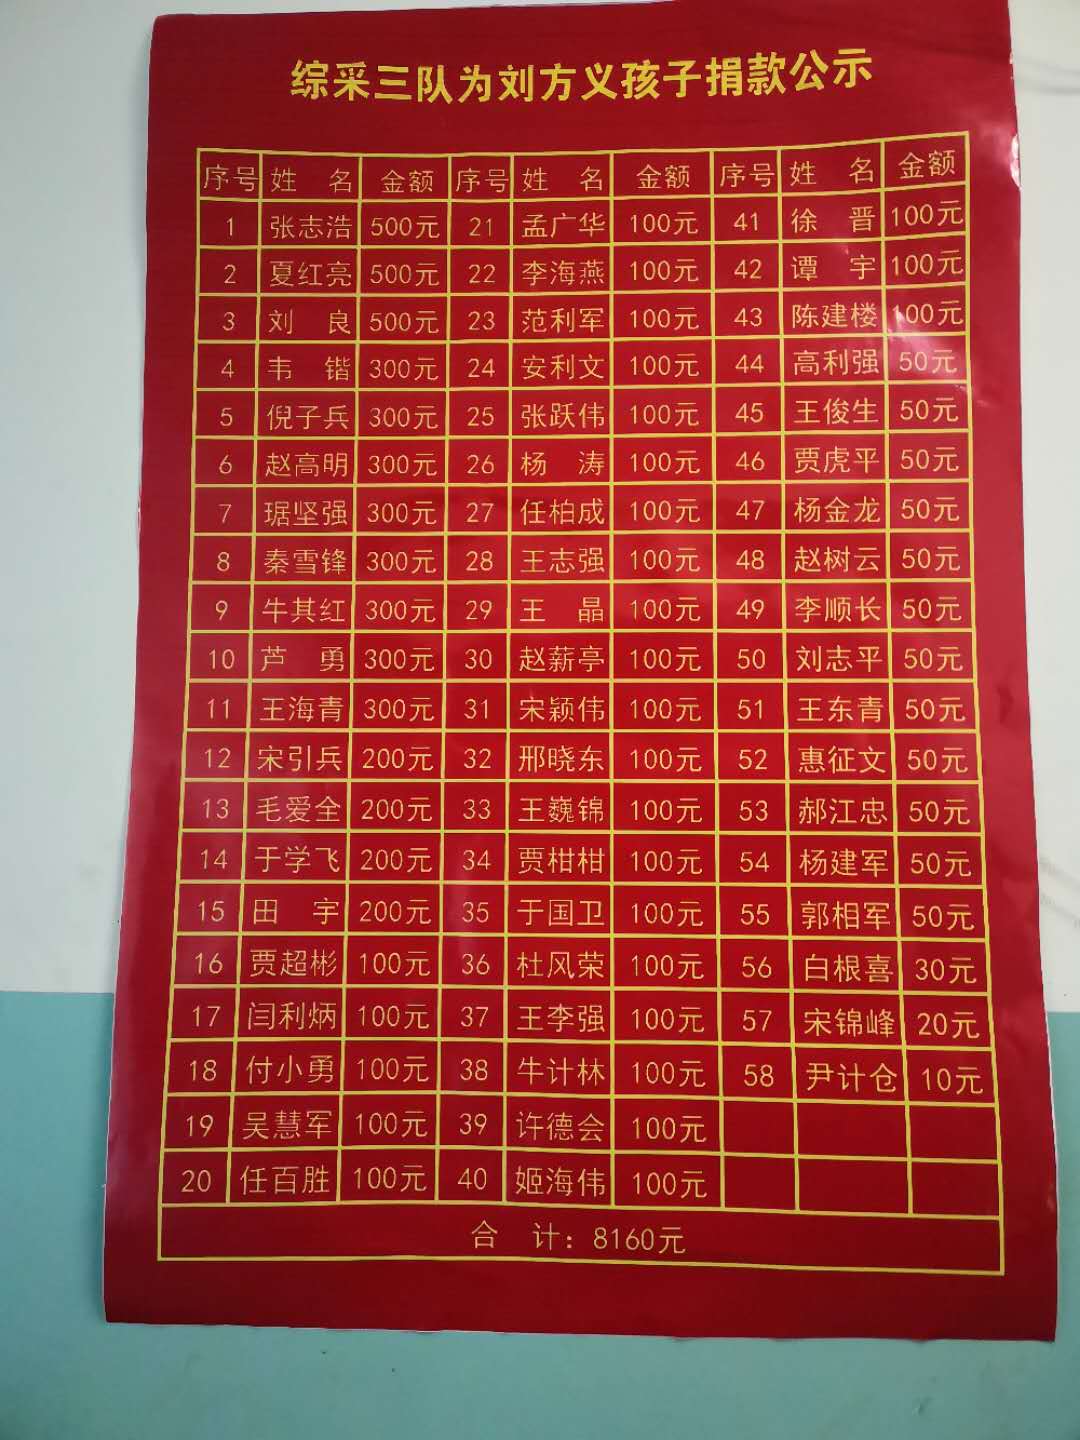 综采三队为刘方义孩子捐款公示
序号 姓 名 金额 序号 姓 名 金额 序号 姓 名 金额
1 张志浩 500元 21 孟广华 100元 41 徐 晋 100元
2 夏红亮 500元 22 李海燕 100元 42 谭 宇 100元
3 刘 良 500元 23 范利军 100元 43 陈建楼 100元
4 韦 锴 300元 24 安利文 100元 44 高利强 50元
5 倪子兵 300元 25 张跃伟 100元 45 王俊生 50元
6 赵高明 300元 26 杨 涛 100元 46 贾虎平 50元
7 琚坚强 300元 27 任柏成 100元 47 杨金龙 50元
8 秦雪锋 300元 28 王志强 100元 48 赵树云 50元
9 牛其红 300元 29 王 晶 100元 49 李顺长 50元
10 芦 勇 300元 30 赵薪亭 100元 50 刘志平 50元
11 王海青 300元 31 宋颖伟 100元 51 王东青 50元
12 宋引兵 200元 32 邢晓东 100元 52 惠征文 50元
13 毛爱全 200元 33 王巍锦 100元 53 郝江忠 50元
14 于学飞 200元 34 贾柑柑 100元 54 杨建军 50元
15 田 宇 200元 35 于国卫 100元 55 郭相军 50元
16 贾超彬 100元 36 杜风荣 100元 56 白根喜 30元
17 闫利炳 100元 37 王李强 100元 57 宋锦峰 20元
18 付小勇 100元 38 牛计林 100元 58 尹计仓 10元
19 吴慧军 100元 39 许德会 100元
20 任百胜 100元 40 姬海伟 100元
合 计：8160元